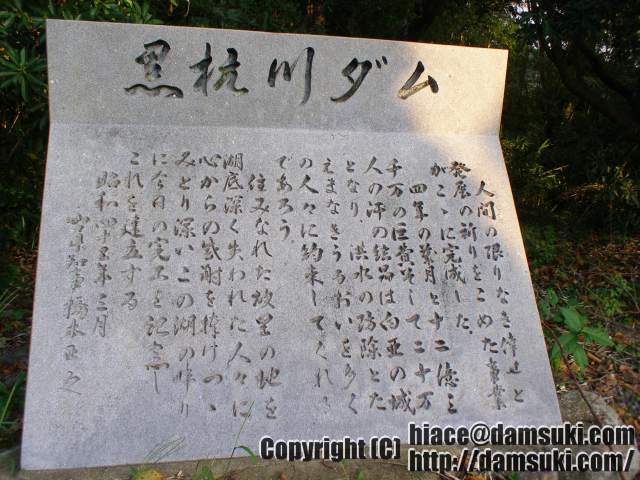 黒杭川ダム
人間の限りなき倖せと
發展の祈りをこめた事業
がこゝに完成した.
四年の歳月と十二億三
千万の巨費そして二十万
人の汗の結晶は白亜の城
となり 洪水の防除とた
えまなきうるおいを多く
の人々に約束してくれる
であろう
住みなれた故里の地を
湖底深く失われた人々に
心からの感謝を捧げつゝ
みどり深いこの湖の畔り
に今日の完工を記念し
これを建立する
昭和四十五年三月
山口県知事 橋本正之
Copyright (C) hiace@damsuki.com
http://damsuki.com/